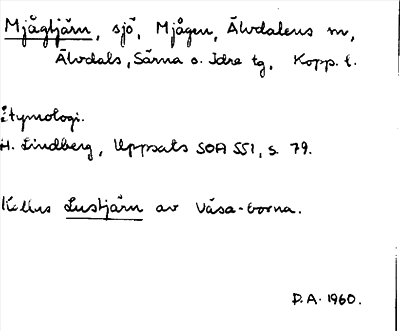 Mjågtjärn, sjö, Mjågen, Älvdalens sn,
Älvdals, Särna o. Idre tg, Kopp. l.
Etymologi.
H. Lindberg, Uppsats SOA 551, s. 79.
Kallas Lustjärn av Våsa-borna.
D.A. 1960.